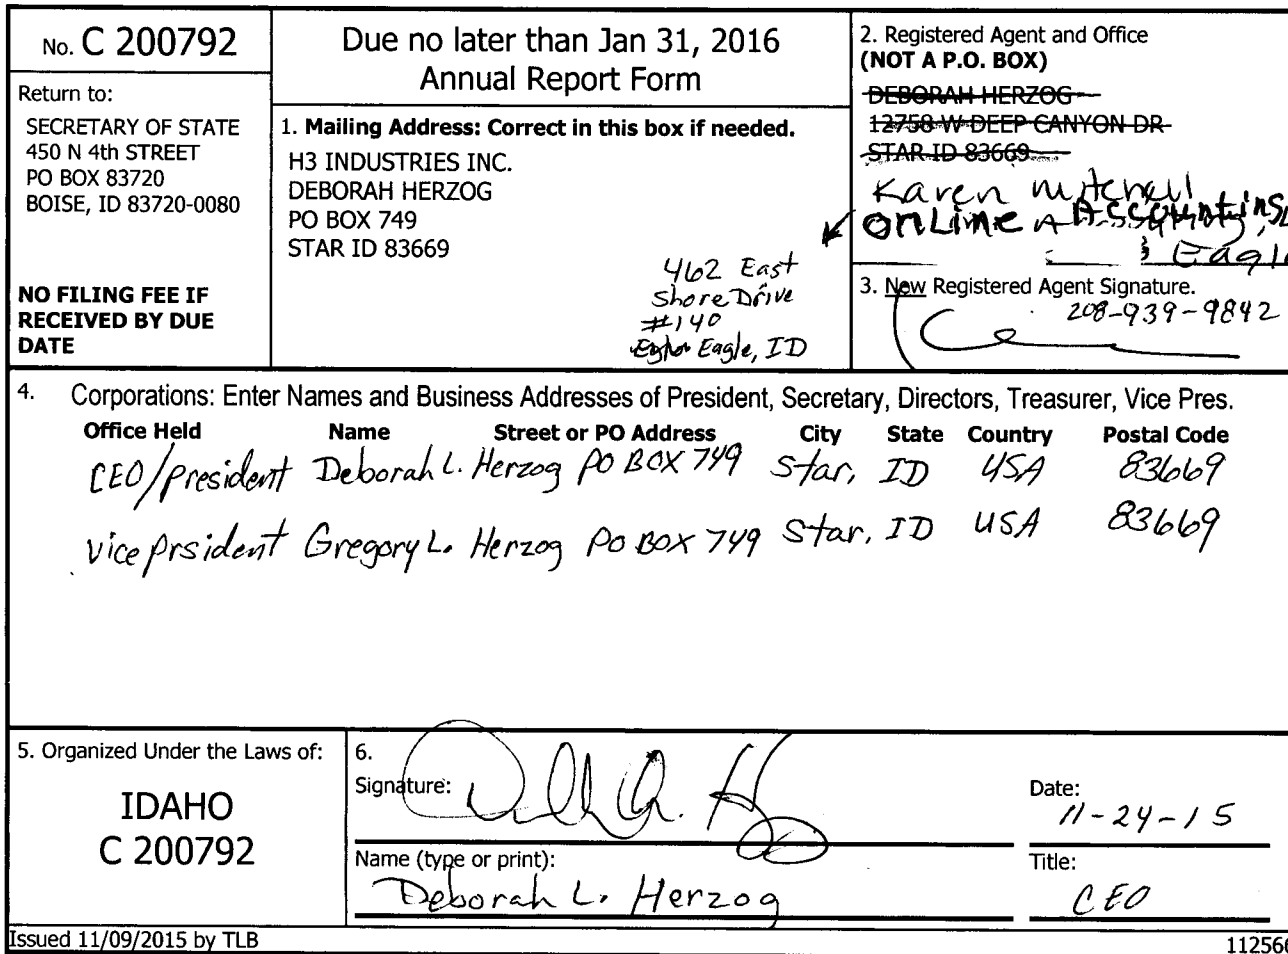 No. C 200792
Return to:
SECRETARY OF STATE
450 N 4th STREET
PO BOX 83720
BOISE, ID 83720-0080
NO FILING FEE IF
RECEIVED BY DUE
DATE
Due no later than Jan 31, 2016
Annual Report Form
1. Mailing Address: Correct in this box if needed.
H3 INDUSTRIES INC.
DEBORAH HERZOG
PO BOX 749
STAR ID 83669
462 East
Shore Drive
#140
Eagle, ID
2. Registered Agent and Office
(NOT A P.O. BOX)
DEBORAH HERZOG
12758 W DEEP CANYON DR
STAR ID 83669
Karen Mitchell
OnLine Accounting
Eagle
3. New Registered Agent Signature.
208-939-9842
4. Corporations: Enter Names and Business Addresses of President, Secretary, Directors, Treasurer, Vice Pres.
Office Held Name Street or PO Address City State Country Postal Code
CEO/President Deborah L. Herzog PO BOX 749 Star, ID USA 83669
vice prsident Gregory L. Herzog PO BOX 749 Star, ID USA 83669
5. Organized Under the Laws of:
IDAHO
C 200792
6.
Signature:
Date:
11-24-15
Name (type or print):
Deborah L. Herzog
Title:
CEO
Issued 11/09/2015 by TLB
112566